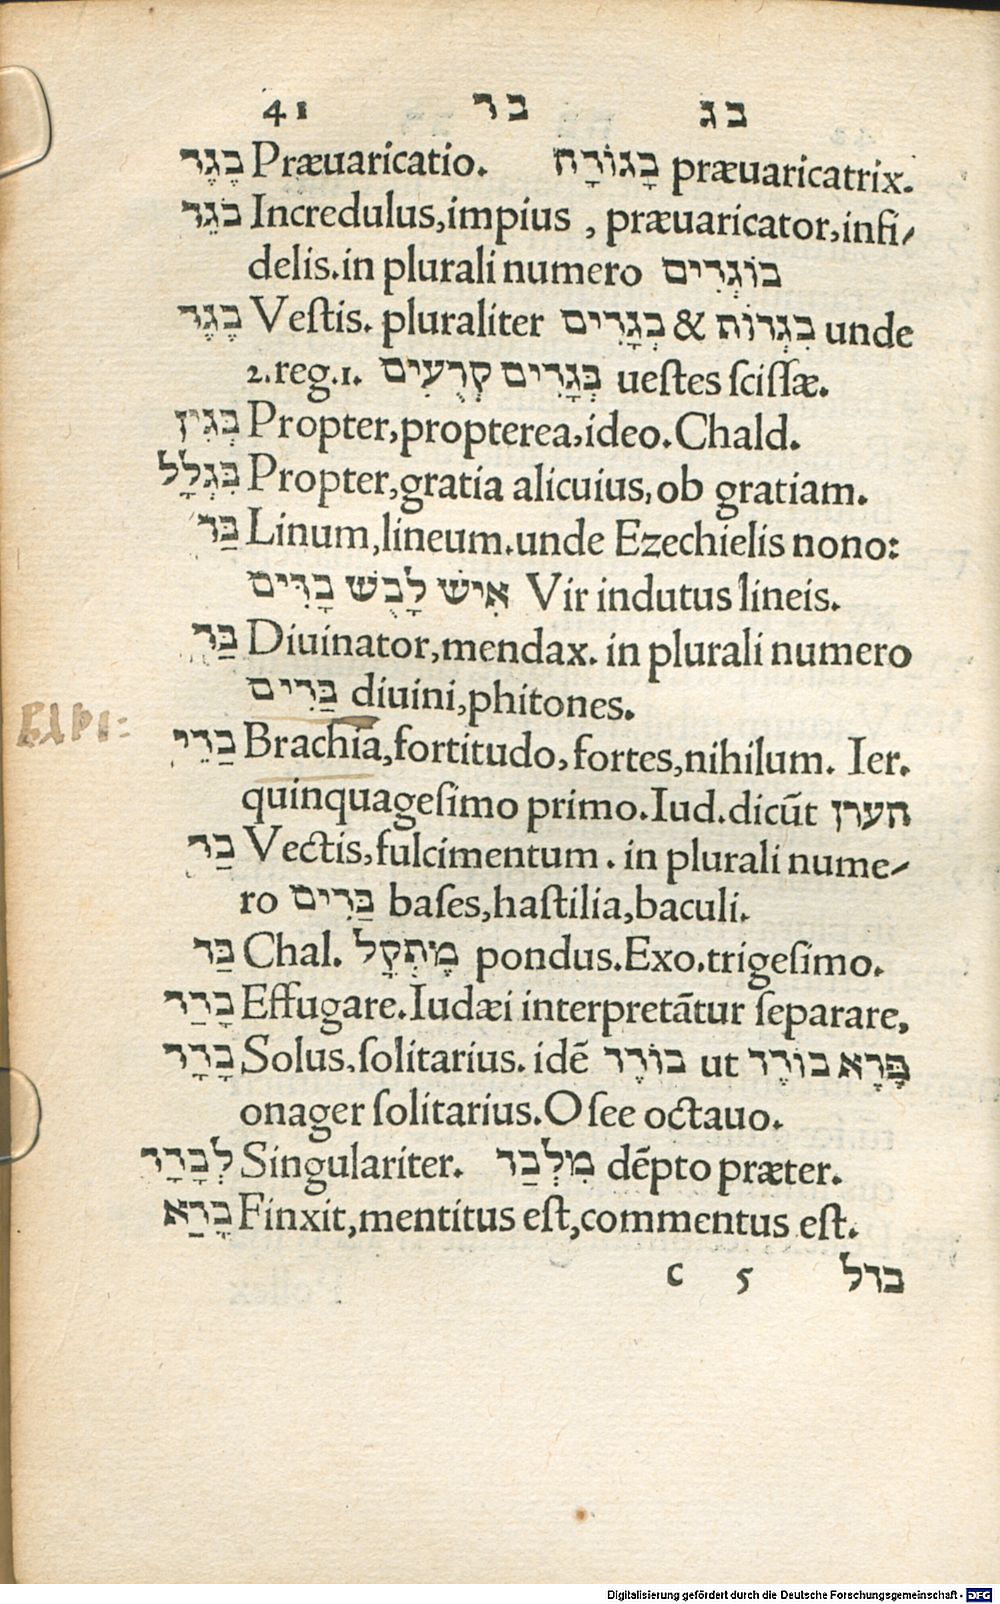 41 בד בג
בֶגֶד Præuaricatio. בָגוֹדָה præuaricatrix.
בֹגֵד Incredulus,impius , præuaricator,infi/
delis.in plurali numero בוֹגְדִים
בֶגֶד Veſtis. pluraliter בְגָדִים & בִגְדוֹת unde
2.reg.1. בְּגָדִים קְרֻעִים ueſtes ſciſſæ.
בְּגִין Propter,propterea,ideo.Chald.
בִּגְלָל Propter,gratia alicuius,ob gratiam.
בַּד Linum,lineum.unde Ezechielis nono:
אִישׁ לָבֻשׁ בָדִּים Vir indutus lineis.
בַּד Diuinator,mendax. in plurali numero
בַּדִים diuini,phitones.
בַדֵי Brachia,fortitudo,fortes,nihilum. Ier.
quinquageſimo primo.Iud.dicūt הערן
בַד Vectis,fulcimentum. in plurali nume/
ro בַּדִים baſes,haſtilia,baculi.
בַּד Chal. מָתְקָל pondus.Exo.trigeſimo.
בָדַד Effugare.Iudæi interpretātur ſeparare,
בָדָד Solus,ſolitarius. idē בוֹדֶד ut פֶּרֶא בוֹדֶד
onager ſolitarius.Oſee octauo.
לְבָדָד Singulariter. מִלְּבַד dēpto præter.
בָדַא Finxit,mentitus eſt,commentus eſt.
c 5 בדל
Digitalisierung gefördert durch die Deutsche Forschungsgemeinschaft - DFG